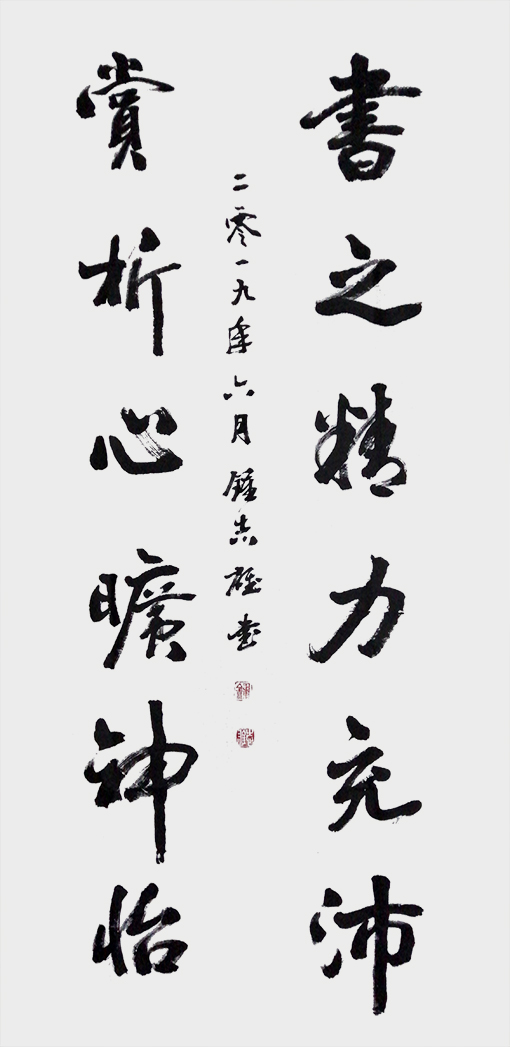 書之精力充沛
賞析心曠神怡
二零一九年六月鍾吉雄書